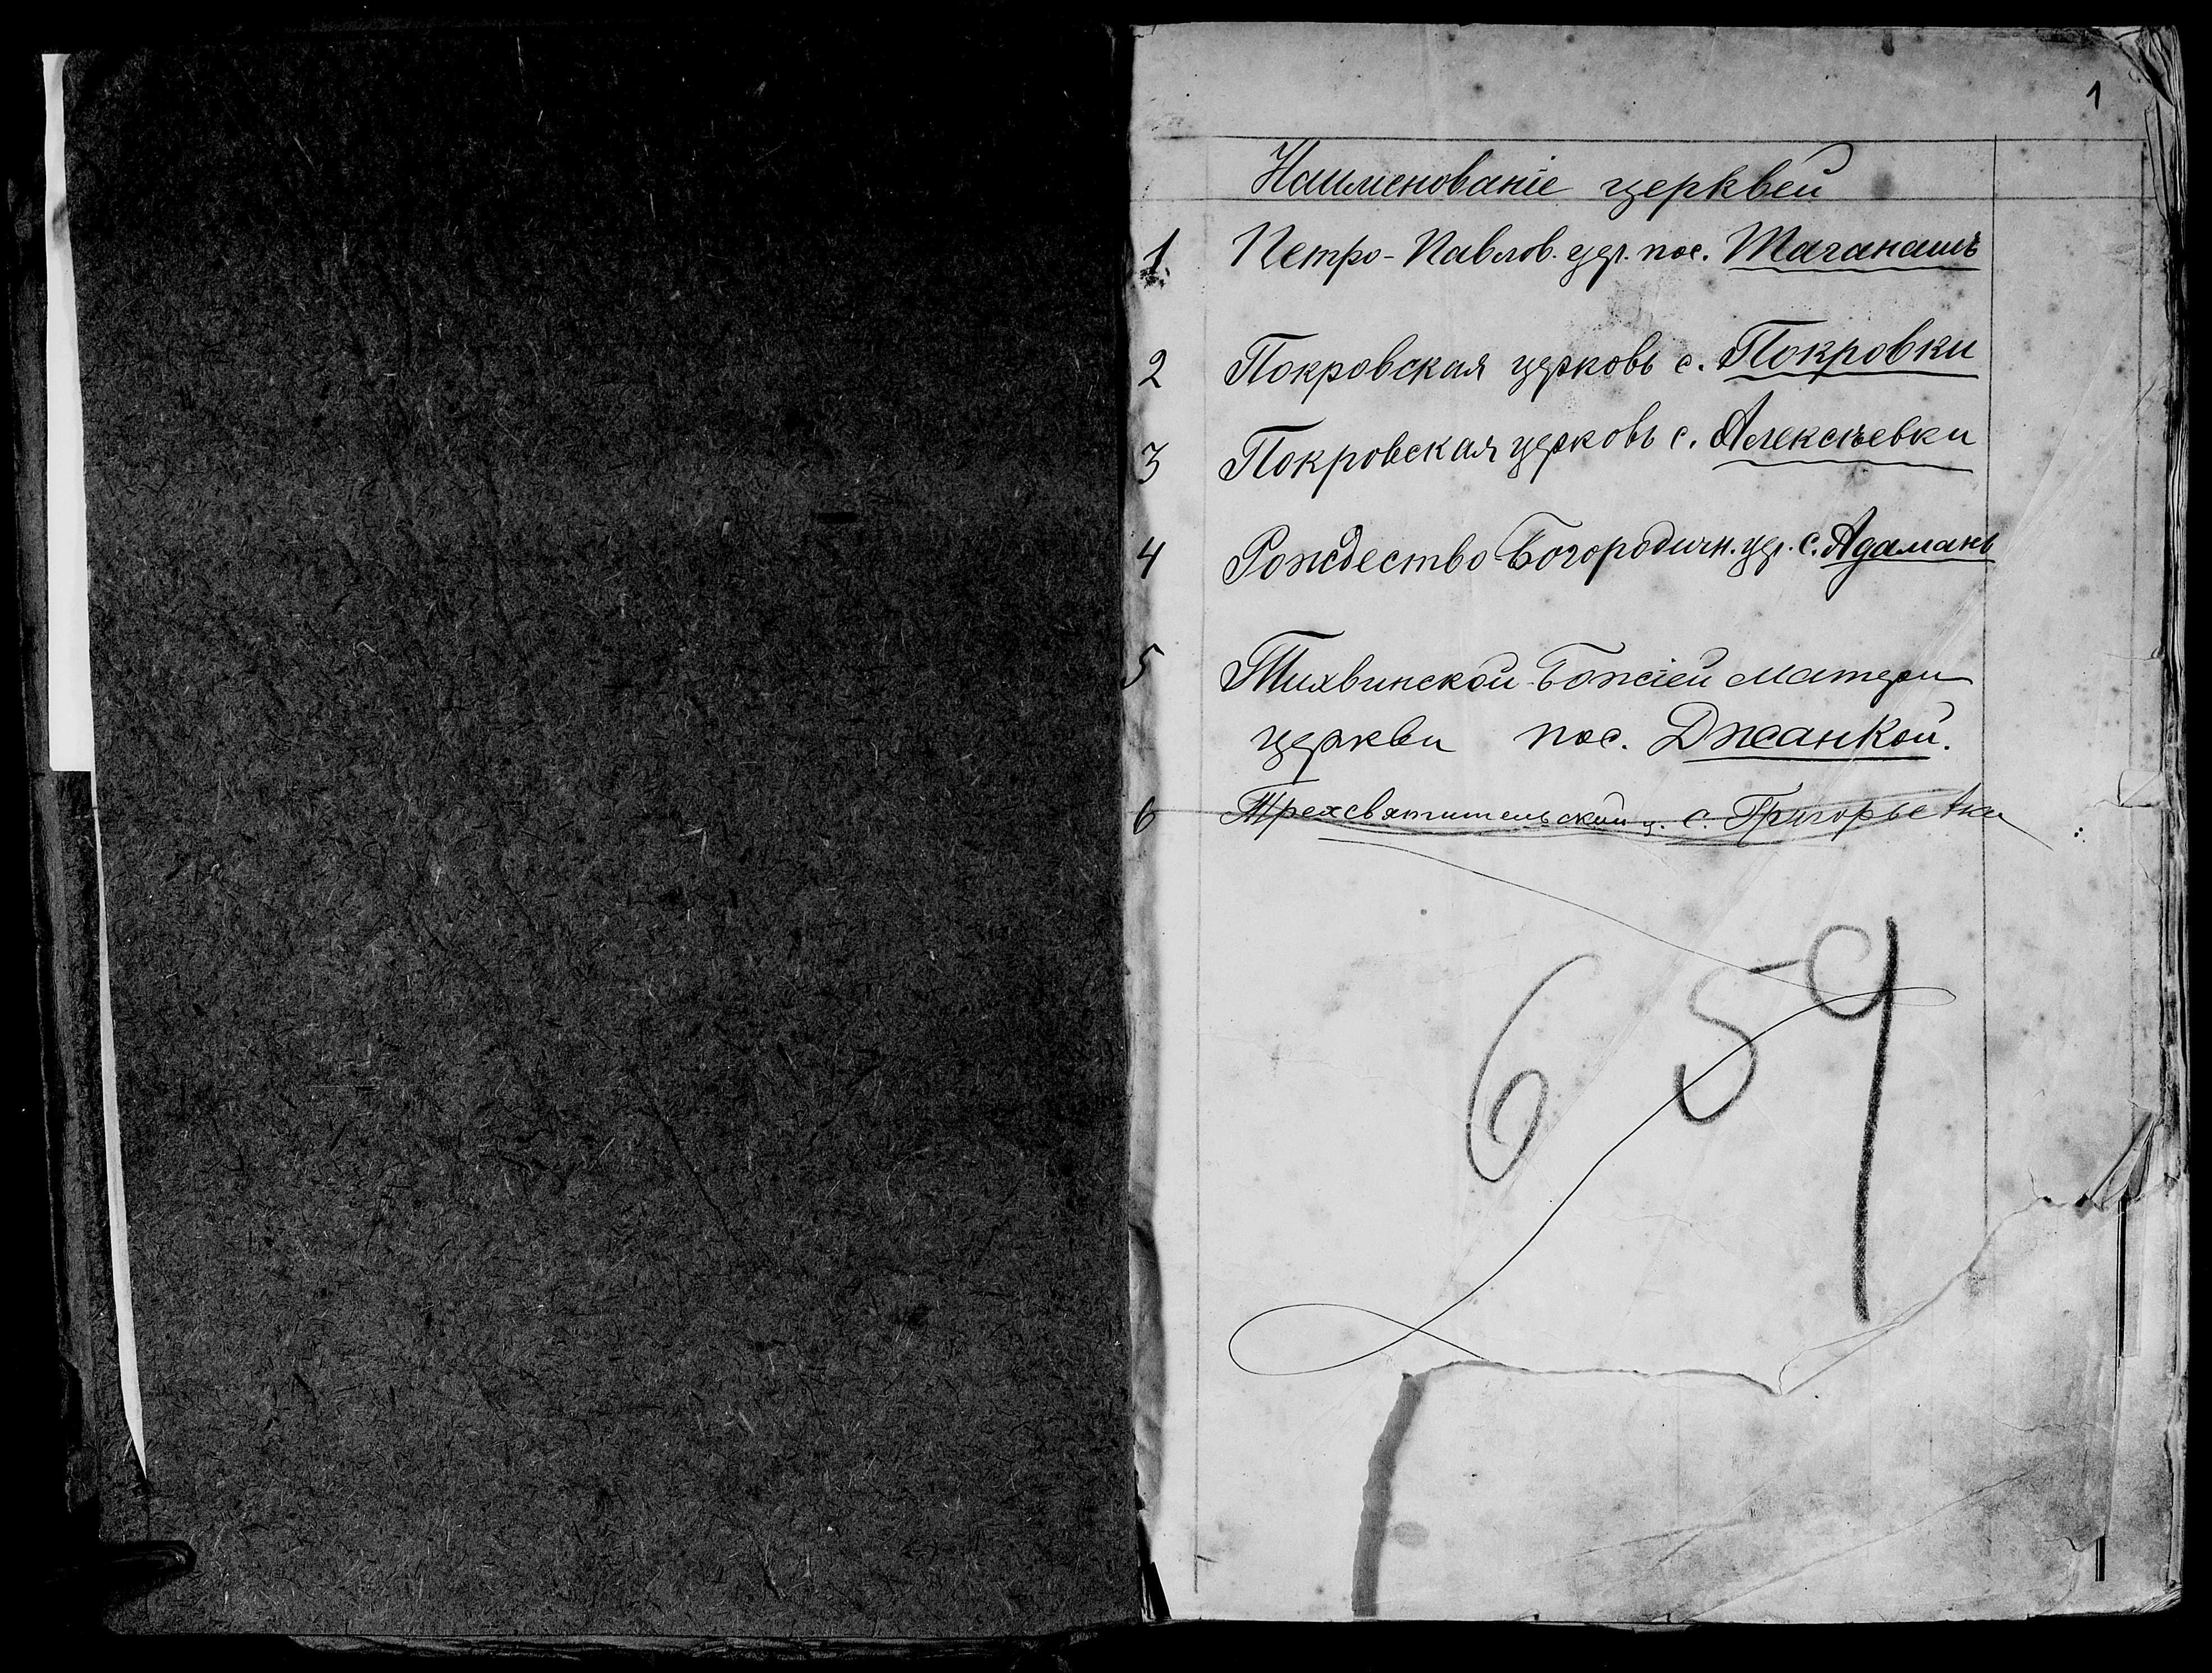 1
Наименованіе церквей
1. Петро-Павлов. цер. пос. Таганашъ
2 Покровская церковь с. Покровки
3 Покровская церковь с. Алексѣевки
4 Рождество Богородичн. цер. с. Адамань
5 Тихвинской Божіей Матери
церкви пос. Джанкой.
6 Трехсвятительской ц. с. Григорьевки
659